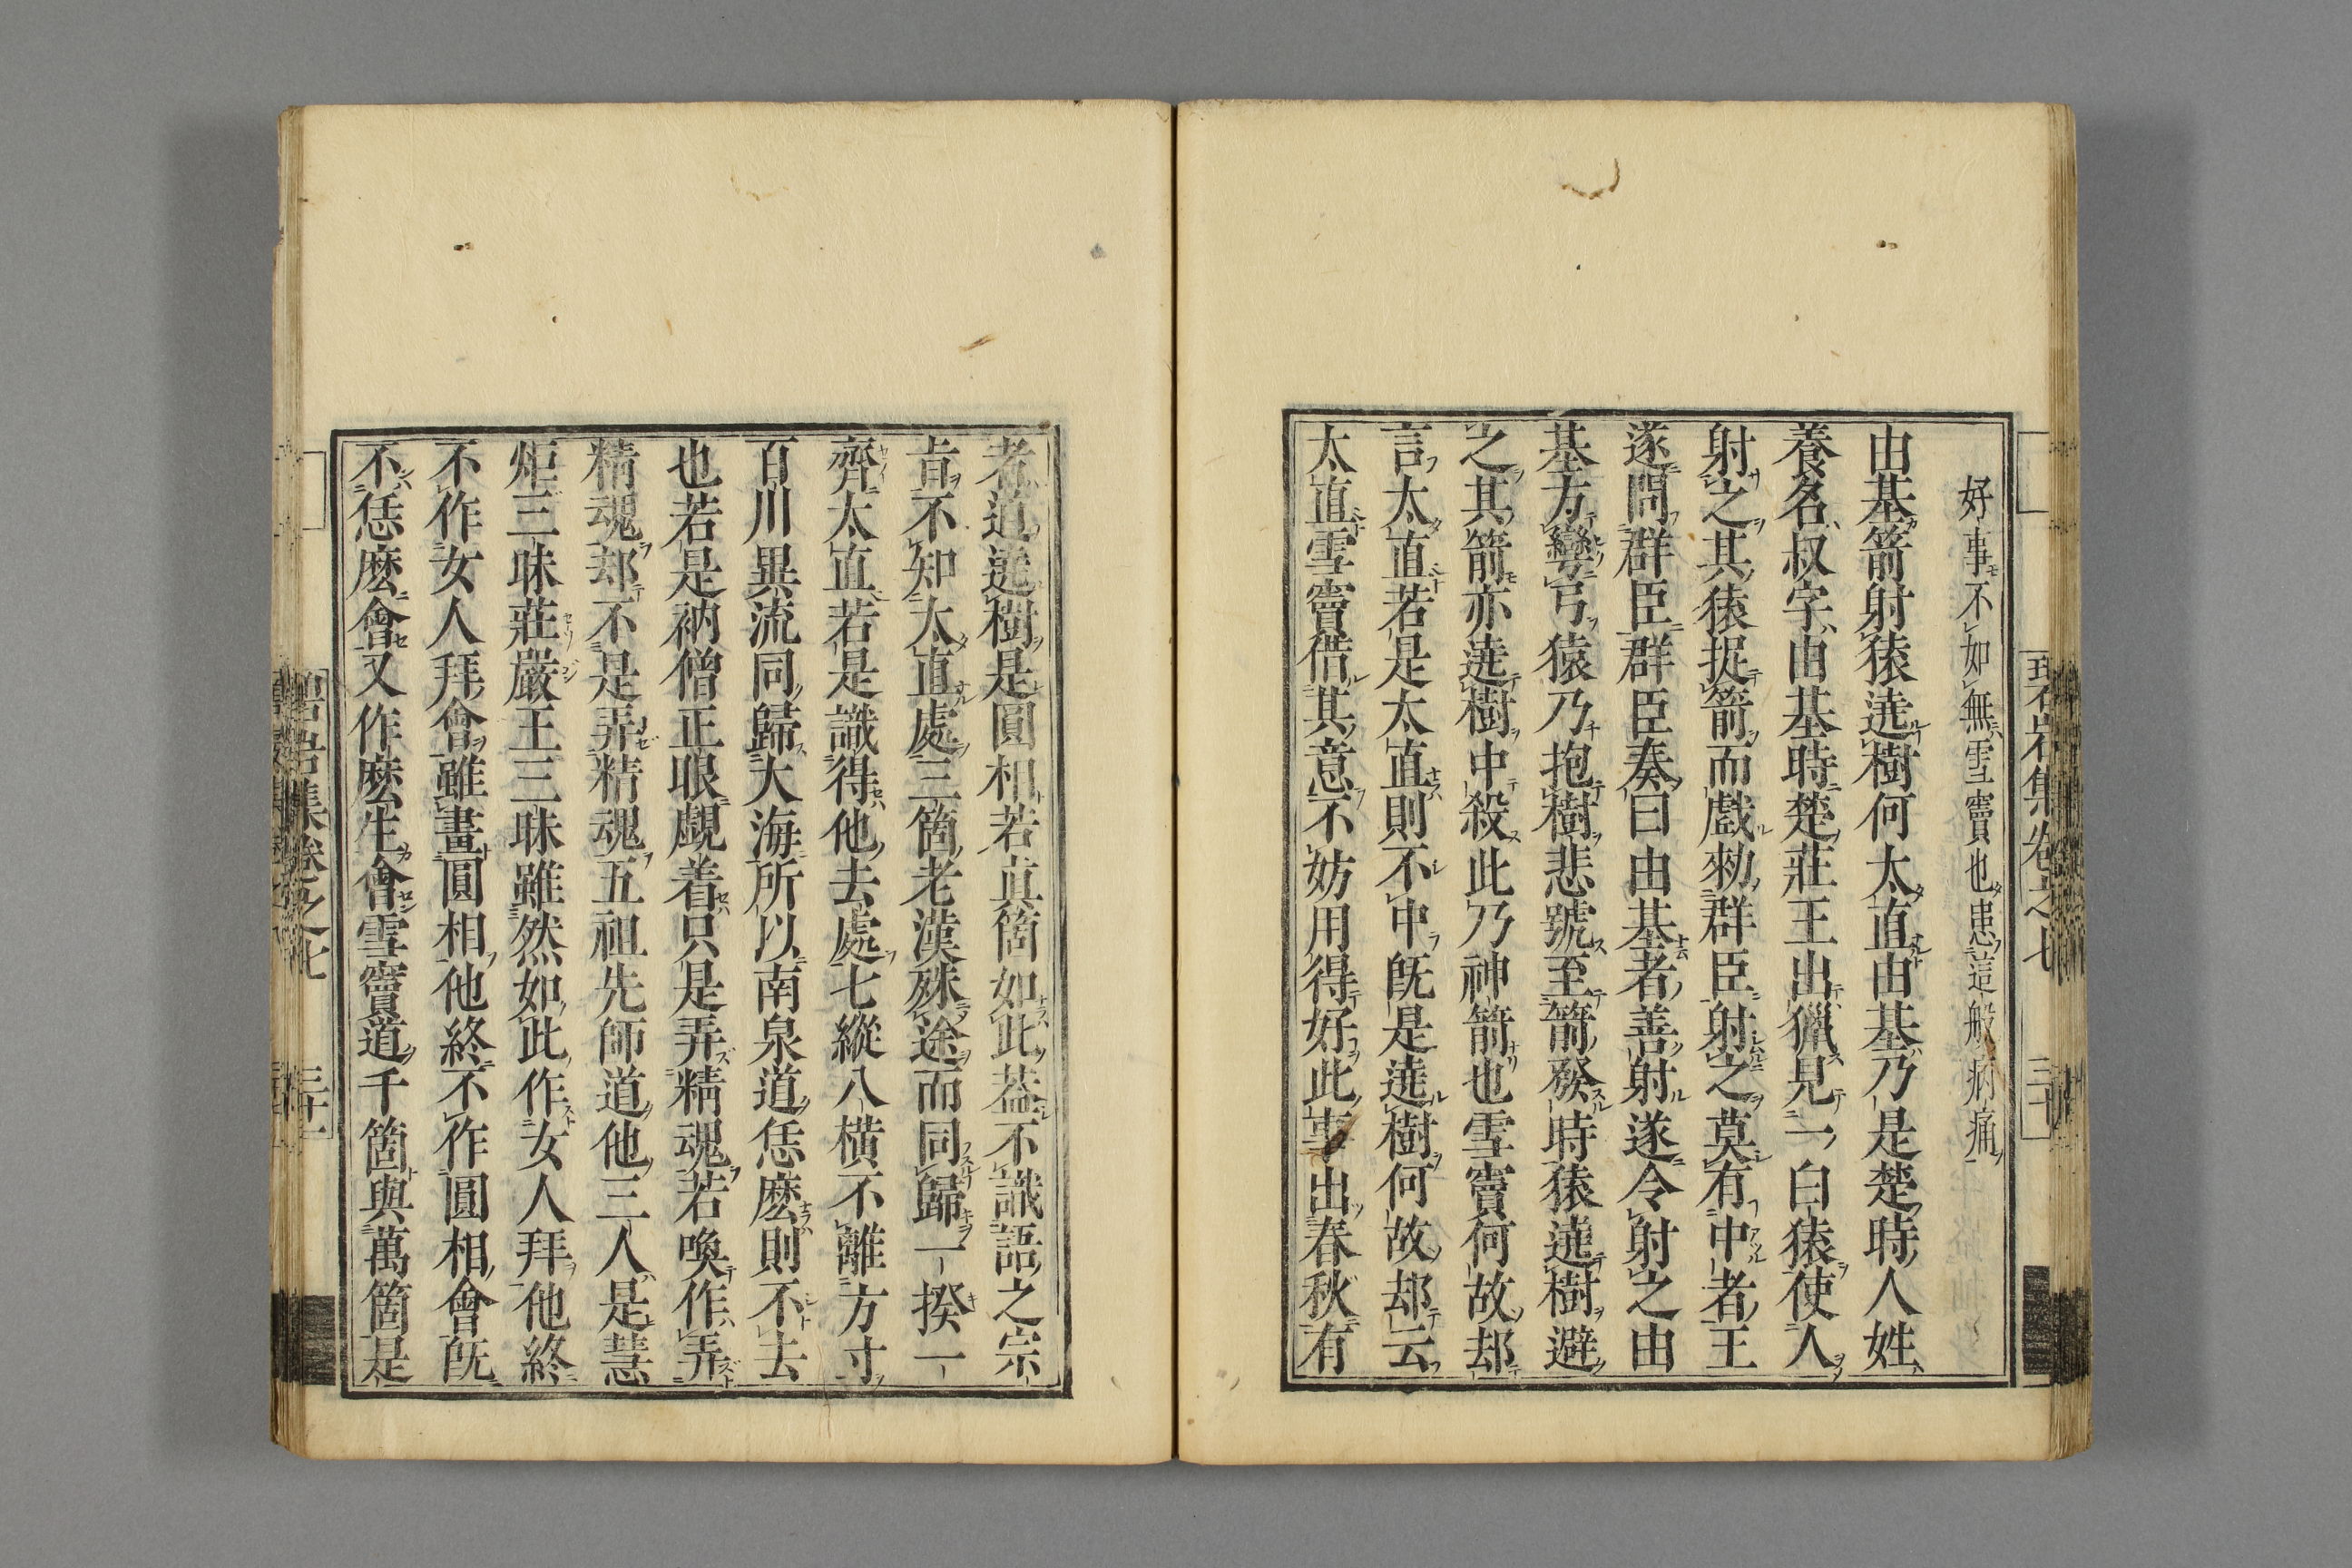 好事不如無雪竇也患這般病痛
由基箭射猿遶樹何太直由基乃是楚時人姓
養名叔字由基時楚莊王出獵見一白猿使人
射之其猿捉箭而戲勑群臣射之莫有中者王
遂問群臣群臣奏曰由基者善射遂令射之由
基方彎弓猿乃抱樹悲號至箭發時猿遶樹避
之其箭亦遶樹中殺此乃神箭也雪竇何故却
言太直若是太直則不中既是遶樹何故却云
太直雪竇借其意不妨用得好此事出春秋有
者道遶樹是圓相若真箇如此蓋不識語之宗
旨不知太直處三箇老漢殊途而同歸一揆一
齊太直若是識得他去處七縱八橫不離方寸
百川異流同歸大海所以南泉道恁麽則不去
也若是衲僧正眼覷着只是弄精魂若喚作弄
精魂却不是弄精魂五祖先師道他三人是慧
炬三昧莊嚴王三昧雖然如此作女人拜他終
不作女人拜會雖畫圓相他終不作圓相會既
不恁麽會又作麽生會雪竇道千箇與萬箇是